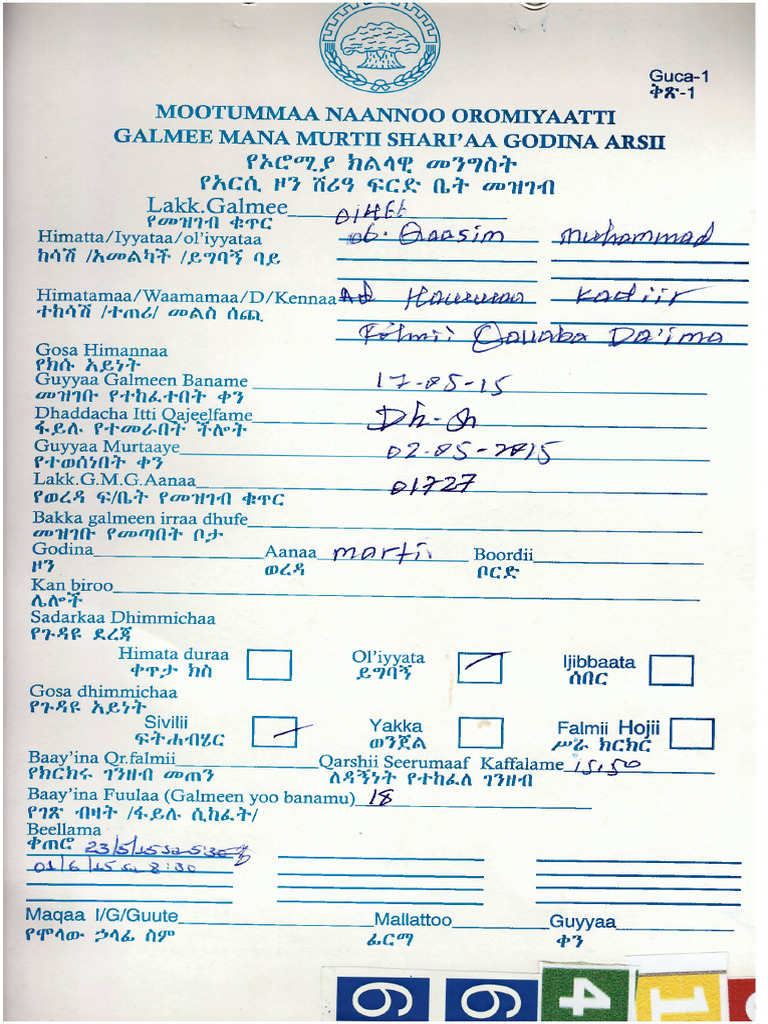 Guca-1
ቅጽ-1
MOOTUMMAA NAANNOO OROMIYAATTI
GALMEE MANA MURTII SHARI'AA GODINA ARSII
የኦሮሚያ ክልላዊ መንግስት
የአርሲ ዞን ሸሪዓ ፍርድ ቤት መዝገብ
Lakk.Galmee
የመዝገብ ቁጥር
Himatta/Iyyataa/ol'iyyataa Qaasim Muhammad
ከሳሽ /አመልካች /ይግባኝ ባይ
Himatamaa/Waamamaa/D/Kennaa Kadiir
ተከሳሽ /ተጠሪ/ መልስ ሰጪ
Da'ima
Gosa Himannaa
የክሱ አይነት
Guyyaa Galmeen Baname 17-05-15
መዝገቡ የተከፈተበት ቀን
Dhaddacha Itti Qajeelfame Dh-
ፋይሉ የተመራበት ችሎት
Guyyaa Murtaaye 02-05-2015
የተወሰነበት ቀን
Lakk.G.M.G.Aanaa 01727
የወረዳ ፍ/ቤት የመዝገብ ቁጥር
Bakka galmeen irraa dhufe
መዝገቡ የመጣበት ቦታ
Godina Aanaa martii Boordii
ዞን ወረዳ ቦርድ
Kan biroo
ሌሎች
Sadarkaa Dhimmichaa
የጉዳዩ ደረጃ
Himata duraa Ol'iyyata Ijibbaata
ቀጥታ ክስ ይግባኝ ሰበር
Gosa dhimmichaa
የጉዳዩ አይነት
Sivilii Yakka Falmii Hojii
ፍትሐብሄር ወንጀል ሥራ ክርክር
Baay'ina Qr.falmii Qarshii Seerumaaf Kaffalame 15.50
የክርክሩ ገንዘብ መጠን ለዳኝነት የተከፈለ ገንዘብ
Baay'ina Fuulaa (Galmeen yoo banamu) 18
የገጽ ብዛት /ፋይሉ ሲከፈት/
Beellama
ቀጠሮ 23/5/15 5:30
01/6/15 8:30
Maqaa I/G/Guute Mallattoo Guyyaa
የሞላው ኃላፊ ስም ፊርማ ቀን
6 6 4 1